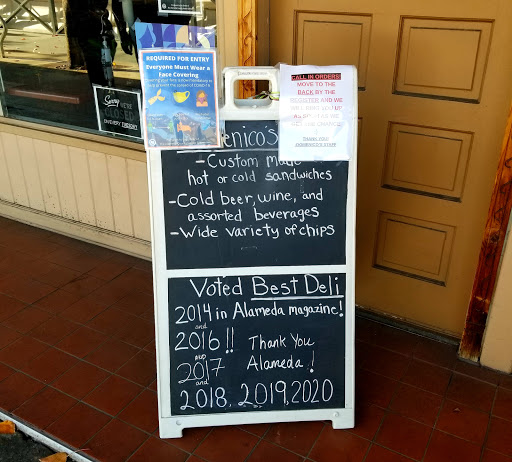 REQUIRED FOR ENTRY
Everyone Must Wear a
Face Covering
CALL IN ORDERS!
MOVE TO THE
BACK BY THE
REGISTER AND WE
THANK YOU!
STAFF
Sorry
WE'RE
CLOSED
enico's
- Custom made
hot or cold sandwiches
- Cold beer, wine, and
assorted beverages
- Wide variety of chips
Voted Best Deli
2014 in Alameda magazine!
and
2016 !! Thank You
and
2017 Alameda!
and
2018, 2019, 2020